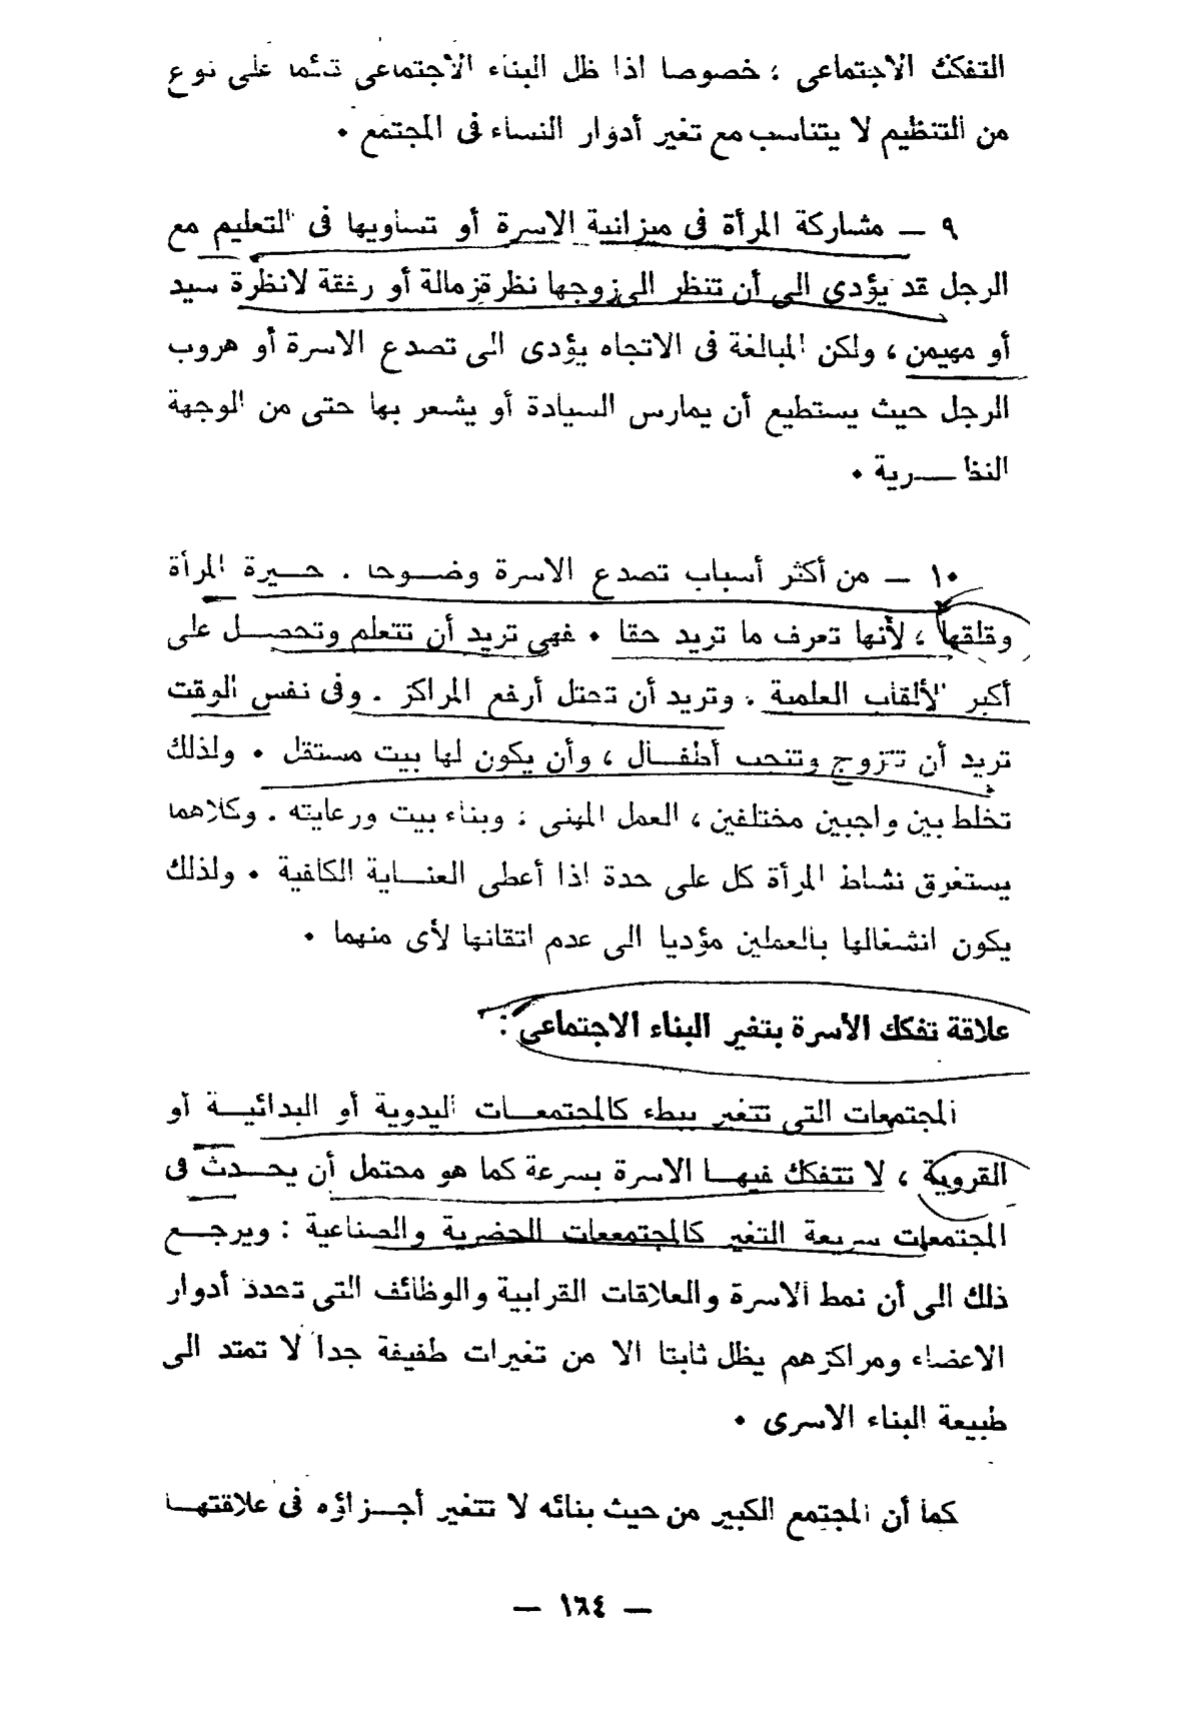 التفكك الاجتماعى ، خصوصا اذا ظل البناء الاجتماعى قائما على نوع
من التنظيم لا يتناسب مع تغير أدوار النساء فى المجتمع .
٩ — مشاركة المرأة فى ميزانية الاسرة أو تساويها فى التعليم مع
الرجل قد يؤدى الى أن تنظر الى زوجها نظرة زمالة أو رفقة لانظرة سيد
أو مهيمن ، ولكن المبالغة فى الاتجاه يؤدى الى تصدع الاسرة أو هروب
الرجل حيث يستطيع أن يمارس السيادة أو يشعر بها حتى من الوجهة
النظـــرية .
١٠ — من أكثر أسباب تصدع الاسرة وضـوحا . حـيرة المرأة
وقلقها ، لأنها تعرف ما تريد حقا . فهى تريد أن تتعلم وتحصـل على
أكبر الألقاب العلمية . وتريد أن تحتل أرفع المراكز . وفى نفس الوقت
تريد أن تتزوج وتنجب أطفـال ، وأن يكون لها بيت مستقل . ولذلك
تخلط بين واجبين مختلفين ، العمل المهنى . وبناء بيت ورعايته . وكلاهما
يستغرق نشاط المرأة كل على حدة اذا أعطى العنـاية الكافية . ولذلك
يكون انشغالها بالعملين مؤديا الى عدم اتقانها لأى منهما .
علاقة تفكك الأسرة بتغير البناء الاجتماعى :
المجتمعات التى تتغير ببطء كالمجتمعـات البدوية أو البدائيـة أو
القروية ، لا تتفكك فيهـا الاسرة بسرعة كما هو محتمل أن يحـدث فى
المجتمعات سريعة التغير كالمجتمععات الحضرية والصناعية : ويرجـع
ذلك الى أن نمط الاسرة والعلاقات القرابية والوظائف التى تحدد أدوار
الاعضاء ومراكزهم يظل ثابتا الا من تغيرات طفيفة جدا لا تمتد الى
طبيعة البناء الاسرى .
كما أن المجتمع الكبير من حيث بنائه لا تتغير أجـزاؤه فى علاقتهـا
— ١٦٤ —